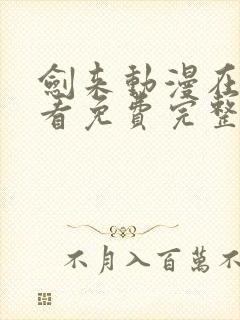 劍来動漫在
看免費完整
不月入百萬不